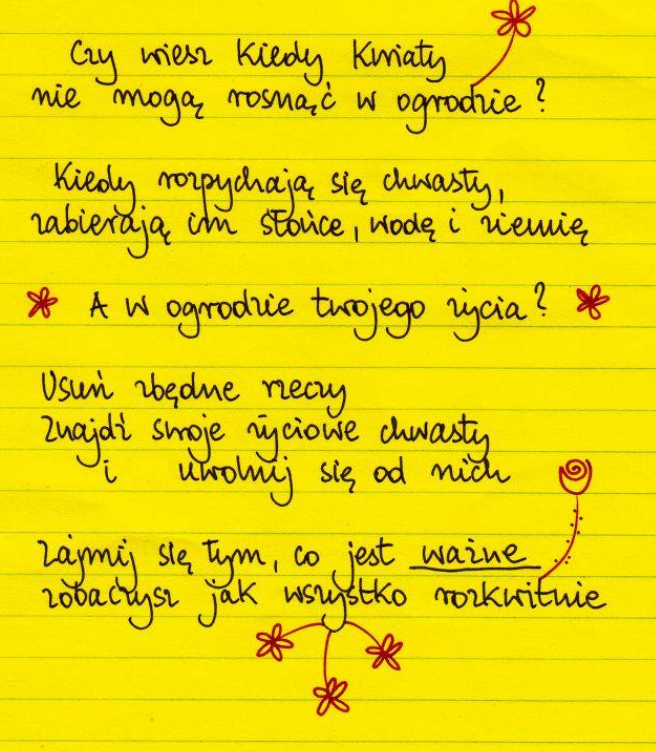 Czy wiesz kiedy kwiaty
nie mogą rosnąć w ogrodzie?
Kiedy rozpychają się chwasty,
zabierają im słońce, wodę i ziemię
A w ogrodzie twojego życia?
Usuń zbędne rzeczy
Znajdź swoje życiowe chwasty
i uwolnij się od nich
Zajmij się tym, co jest ważne
zobaczysz jak wszystko rozkwitnie